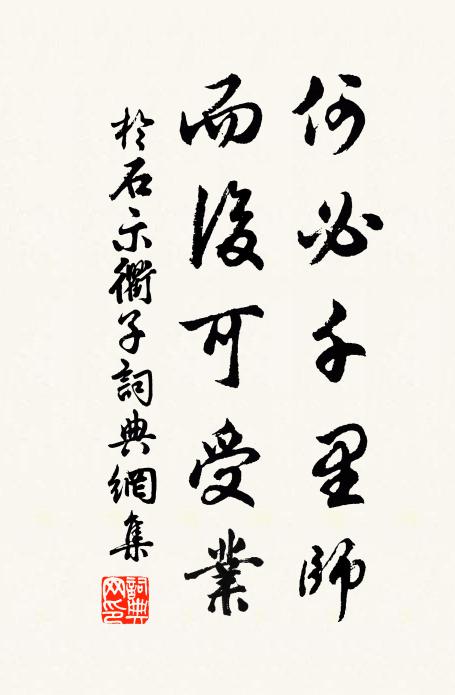 何必千里師
而後可受業
於石示衢子詞典網集
詞典
网印